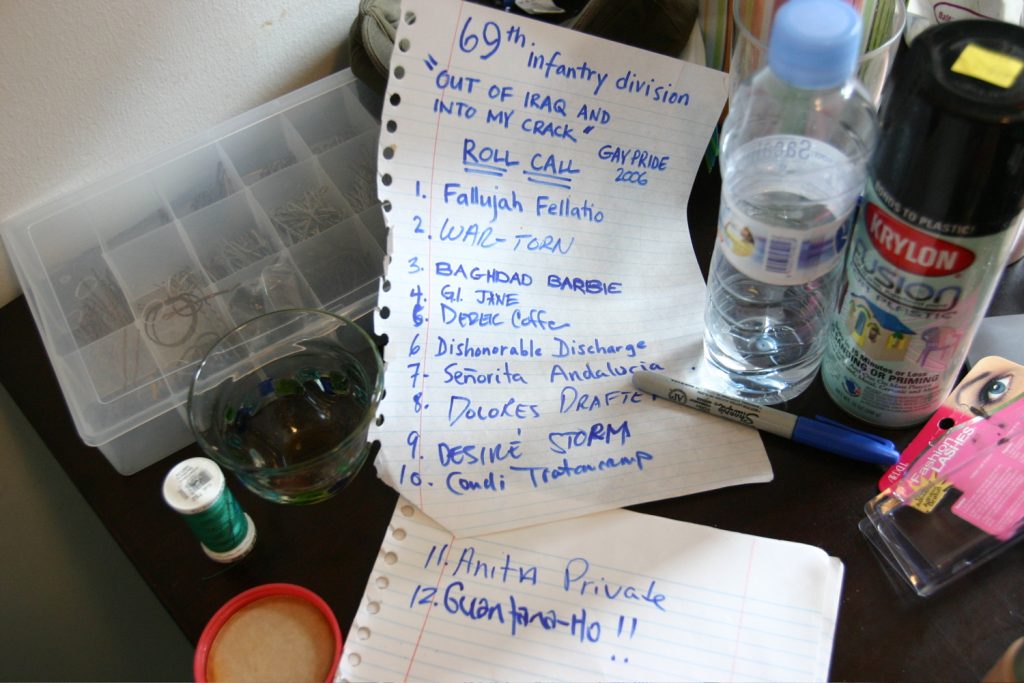 69th infantry division
"OUT OF IRAQ AND
INTO MY CRACK"
ROLL CALL
GAY PRIDE
2006
1. Fallujah Fellatio
2. WAR-TORN
3. BAGHDAD BARBIE
4. G.I. JANE
5. DEREK Coffe
6 Dishonorable Discharge
7- Señorita Andalucia
8. DOLORES DRAFTE
9. DESIRÉ STORM
10. Condi
11. Anita Private
12. Guantana-Ho!!
Sharpie
BONDS TO PLASTIC!
KRYLON
FUSION
FOR PLASTIC
Minutes or Less
SANDING OR PRIMING
Fashion
LASHES